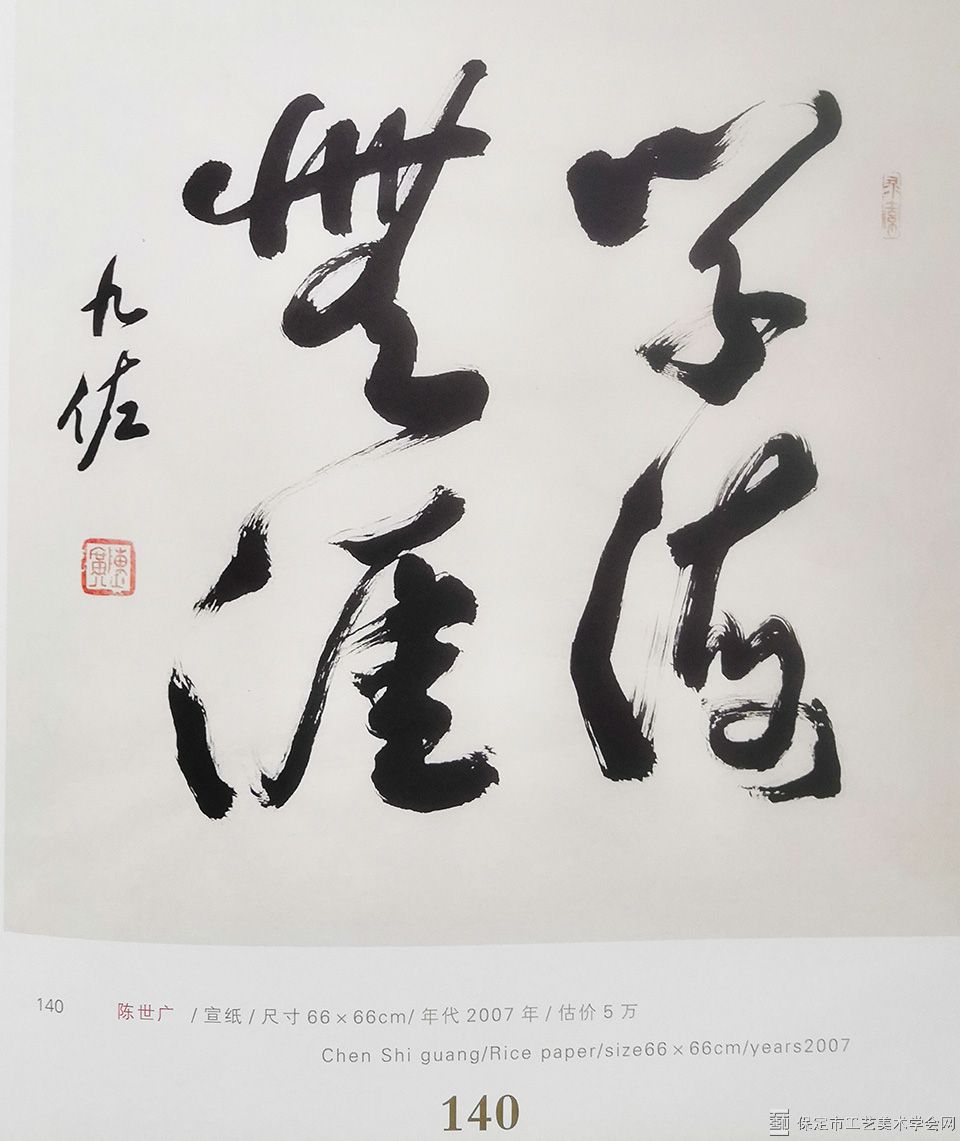 学海
無涯
九佐
140 陈世广 / 宣纸 / 尺寸 66×66cm/ 年代 2007 年 / 估价 5 万
Chen Shi guang/Rice paper/size66×66cm/years2007
140
保定市工艺美术学会网